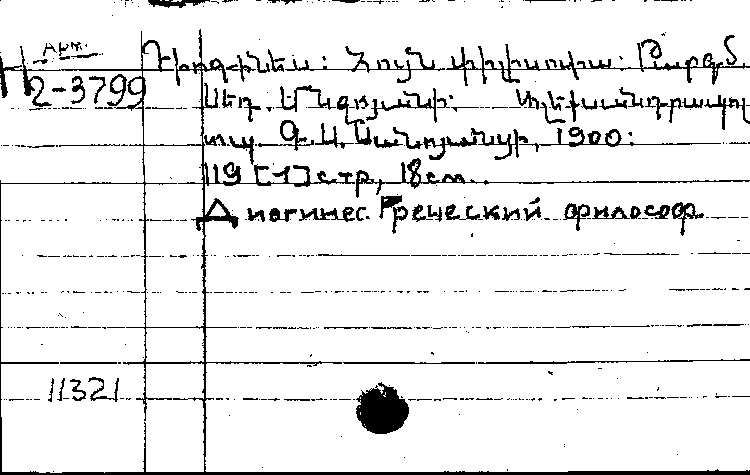 Арм.
2-3799
Դիոգինես: Հույն փիլիսոփա: Թարգմ.
Սեդ. Մ
Ալեքսանդրապոլ
տպ. Գ. Ս. Սանոյանցի, 1900:
119 [1] стр, 18см.
Диогинес. Греческий философ.
11321